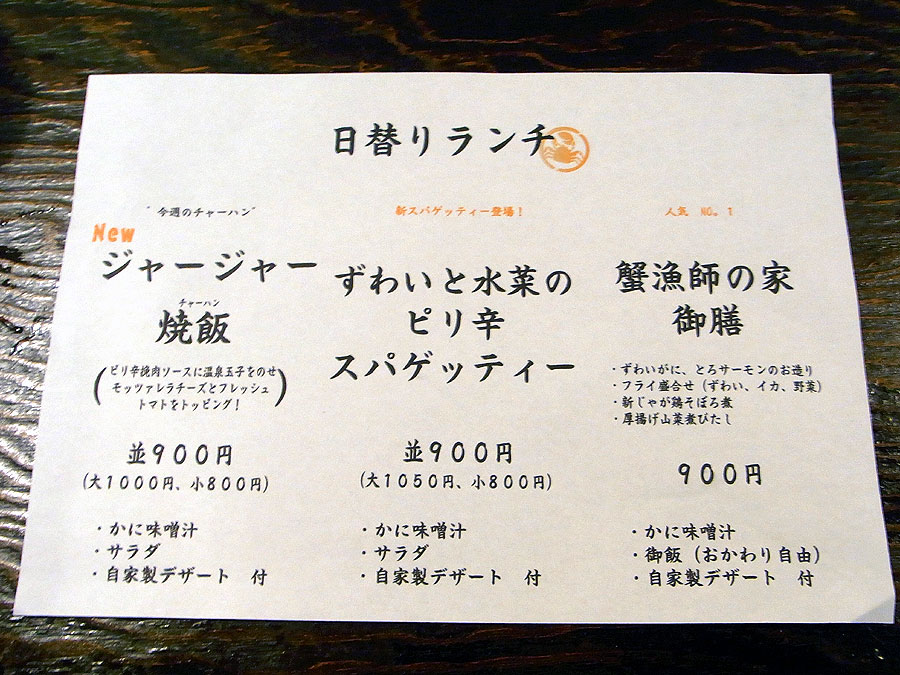 日替りランチ
"今週のチャーハン"
New
ジャージャー
チャーハン
焼飯
(ピリ辛挽肉ソースに温泉玉子をのせ
モッツァレラチーズとフレッシュ
トマトをトッピング!)
並900円
(大1000円、小800円)
・かに味噌汁
・サラダ
・自家製デザート 付
新スパゲッティー登場!
ずわいと水菜の
ピリ辛
スパゲッティー
並900円
(大1050円、小800円)
・かに味噌汁
・サラダ
・自家製デザート 付
人気 NO。1
蟹漁師の家
御膳
・ずわいがに、とろサーモンのお造り
・フライ盛合せ(ずわい、イカ、野菜)
・新じゃが鶏そぼろ煮
・厚揚げ山菜煮びたし
900円
・かに味噌汁
・御飯(おかわり自由)
・自家製デザート 付